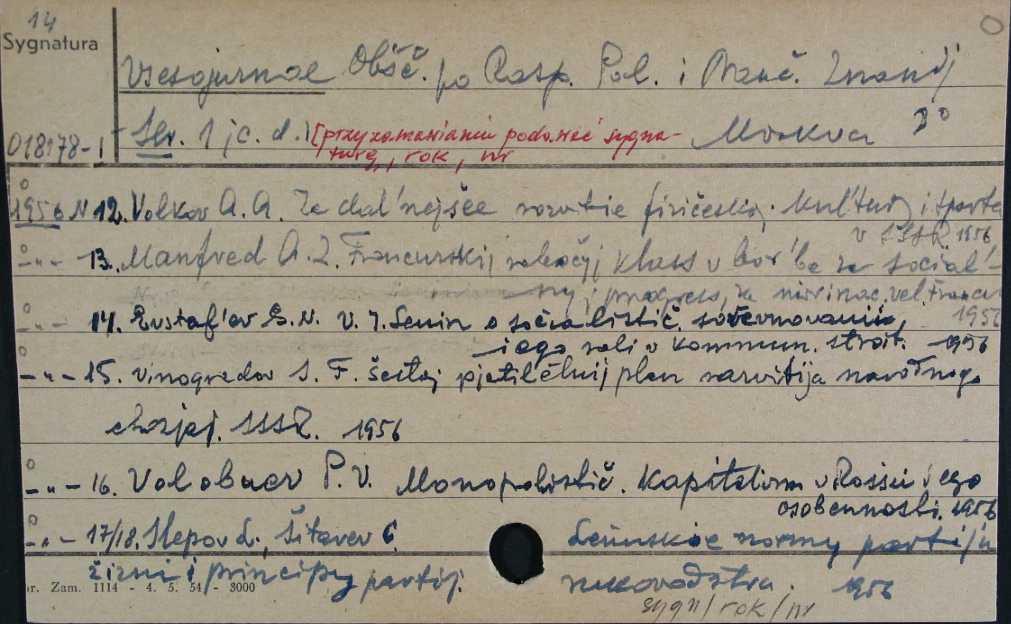 14
Sygnatura
Vsesojuznoe Obšč. po Rasp. Pol. i Nauč. Znanij
018178-I Ser. 1 /c. d./ [przy zamawianiu podawać sygna- Moskva
turę, rok, nr
1956 N 12. Volkov A. A. Za dal'nejšee razvitie fizičeskoj kul'tury i sporta
v SSSR. 1956
-"- 13. Manfred A. Z. Francuzskij rabočij klass v bor'be za social'-
nyj progress, za
1956
-"- 14. Evstaf'ev G. N. V. I. Lenin o socialistič. sorevnovanii,
i ego roli v kommun. stroit. 1956
-"- 15. Vinogradov I. F. Šestoj pjatiletnij plan razvitija narodnogo
chozjaj. SSSR. 1956
-"- 16. Volobuev P. V. Monopolistič. kapitalizm v Rossii i ego
osobennosti. 1956
-"- 17/18. Slepov L., Šitarev G. Leninskie normy partijn.
žizni i principy partij. rukovodstva. 1956
or. Zam. 1114 - 4. 5. 54 - 3000
sygn/rok/nr